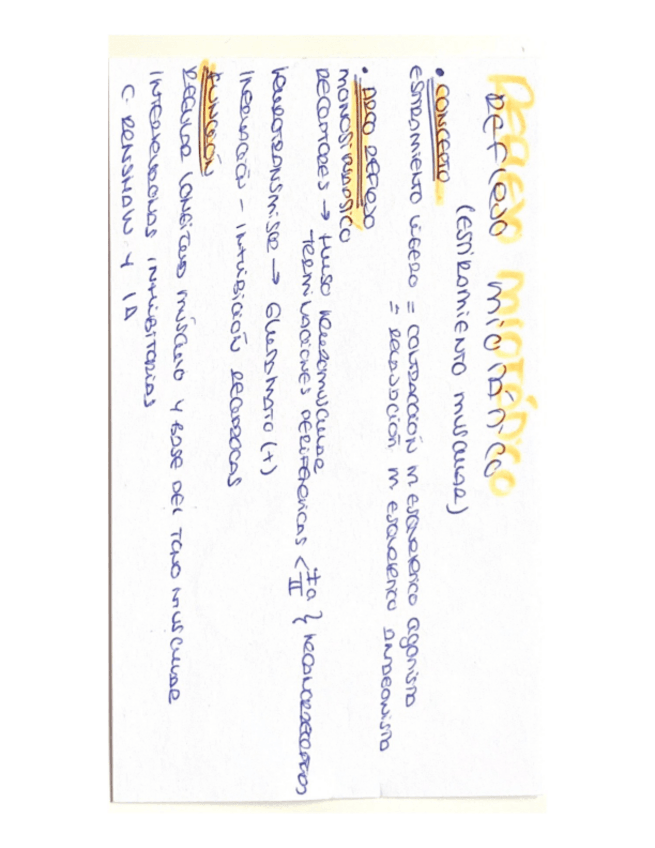 REFLEJO MIOTÁTICO
(ESTIRAMIENTO MUSCULAR)
• CONCEPTO
ESTIRAMIENTO LIGERO = CONTRACCIÓN M ESQUELETICO agonista
= RELAJACIÓN M ESQUELETICO ANTAGONISTA
• ARCO REFLEJO
MONOSINÁPSICO
RECEPTORES → HUSO NEUROMUSCULAR
TERMINACIONES PERIFERICAS < Ia II } MECANORRECEPTORES
NEUROTRANSMISOR → GLUTAMATO (+)
INERVACIÓN - INHIBICIÓN RECIPROCAS
FUNCIÓN
REGULAR LONGITUD MÚSCULO Y BASE DEL TONO MUSCULAR
INTERNEURONAS INHIBITORIAS
C. RENSHAW Y IA